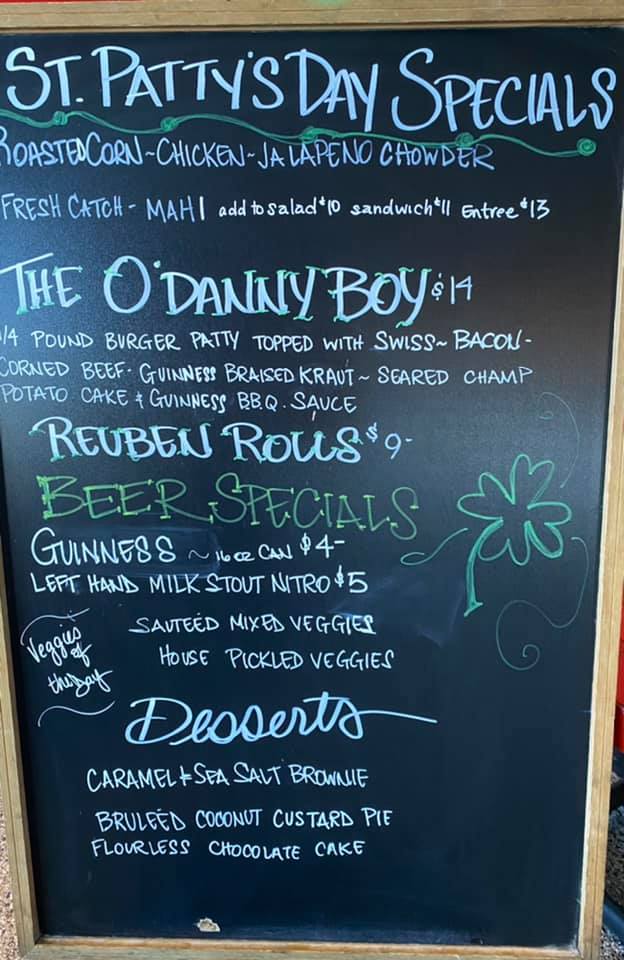 ST. PATTY'S DAY SPECIALS
ROASTED CORN ~ CHICKEN ~ JALAPENO CHOWDER
FRESH CATCH - MAHI add to salad $10 sandwich $11 Entree $13
THE O'DANNY BOY $14
1/4 POUND BURGER PATTY TOPPED WITH SWISS ~ BACON -
CORNED BEEF - GUINNESS BRAISED KRAUT ~ SEARED CHAMP
POTATO CAKE & GUINNESS B.B.Q. SAUCE
REUBEN ROLLS $9-
BEER SPECIALS
GUINNESS ~ 16 oz CAN $4-
LEFT HAND MILK STOUT NITRO $5
Veggies of the Day
SAUTEÉD MIXED VEGGIES
HOUSE PICKLED VEGGIES
Desserts
CARAMEL & SEA SALT BROWNIE
BRULEÉD COCONUT CUSTARD PIE
FLOURLESS CHOCOLATE CAKE